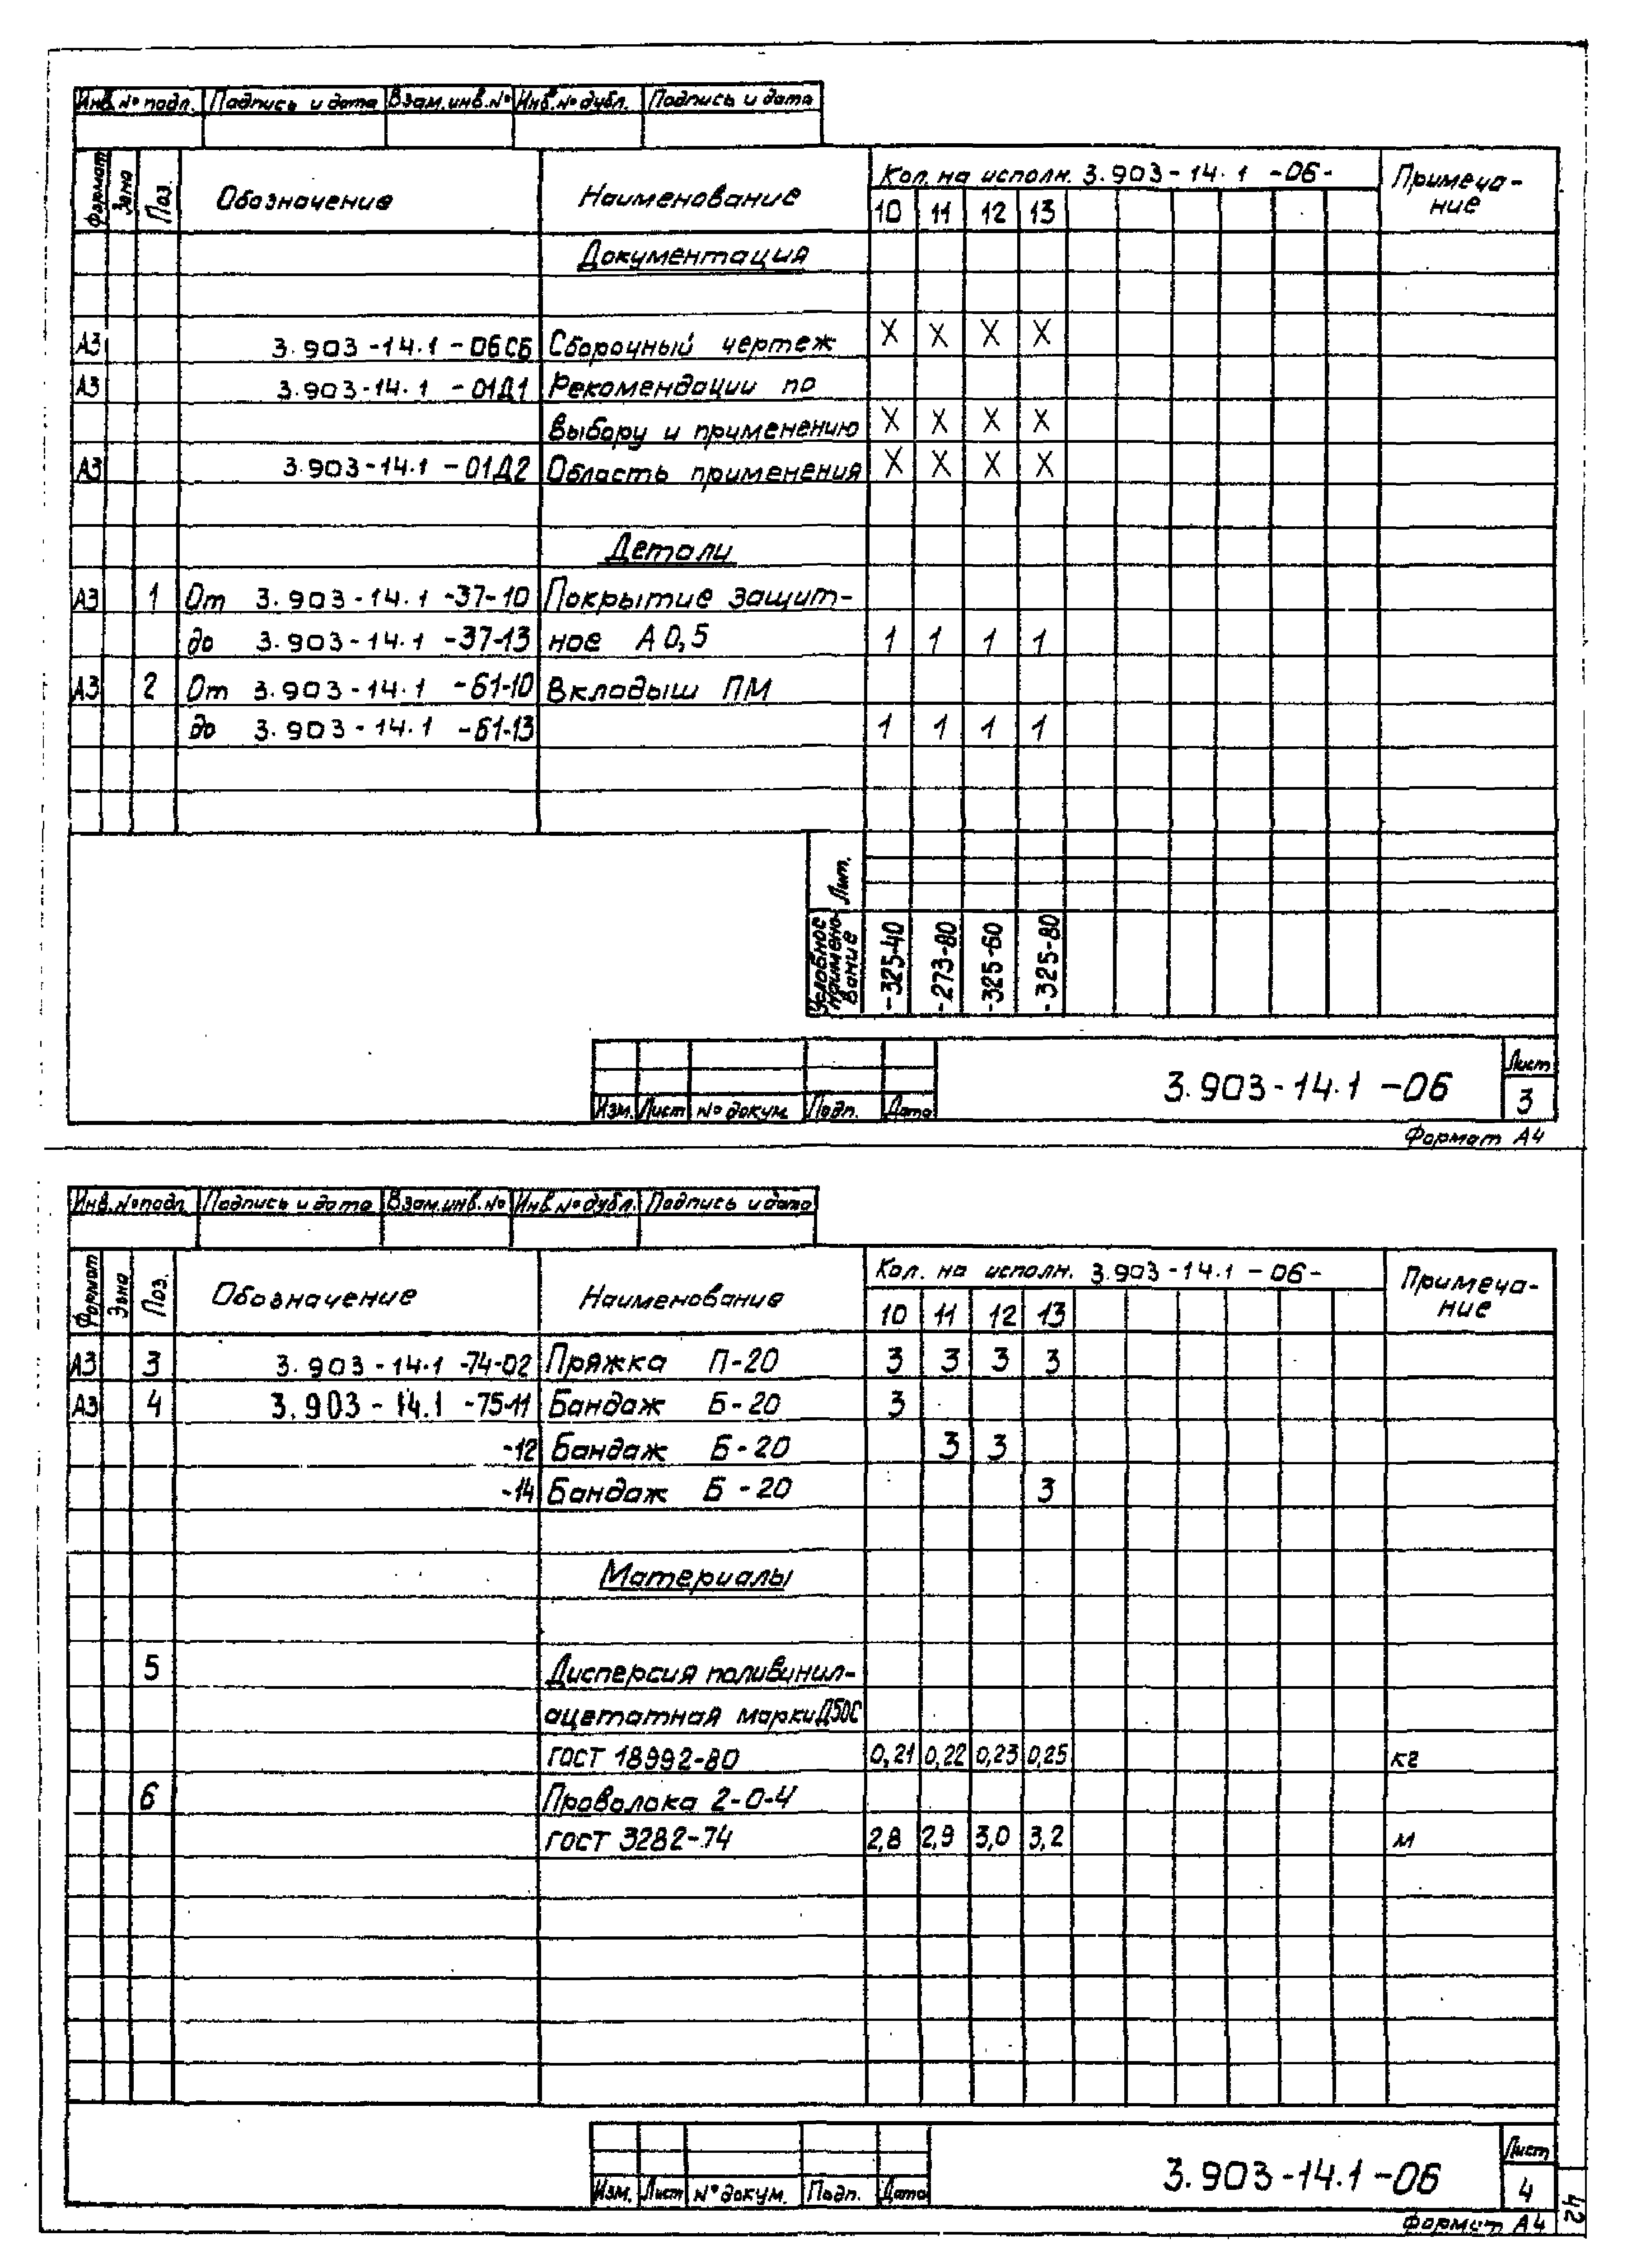 Инв.№ подл. Подпись и дата Взам.инв.№ Инв.№ дубл. Подпись и дата
Формат Зона Поз. Обозначение Наименование Кол. на исполн. 3.903-14.1 -06- Примеча-
ние
10 11 12 13
Документация
А3 3.903-14.1-06СБ Сборочный чертеж X X X X
А3 3.903-14.1-01Д1 Рекомендации по
выбору и применению X X X X
А3 3.903-14.1-01Д2 Область применения X X X X
Детали
А3 1 От 3.903-14.1-37-10 Покрытие защит-
до 3.903-14.1-37-13 ное А 0,5 1 1 1 1
А3 2 От 3.903-14.1-61-10 Вкладыш ПМ
до 3.903-14.1-61-13 1 1 1 1
Лит.
Условное
наимено-
вание
-325-40 -273-80 -325-60 -325-80
Изм. Лист № докум. Подп. Дата
3.903-14.1-06
Лист
3
Формат А4
Инв.№подл. Подпись и дата Взам.инв.№ Инв.№дубл. Подпись и дата
Формат Зона Поз. Обозначение Наименование Кол. на исполн. 3.903-14.1-06- Примеча-
ние
10 11 12 13
А3 3 3.903-14.1-74-02 Пряжка П-20 3 3 3 3
А3 4 3.903-14.1-75-11 Бандаж Б-20 3
-12 Бандаж Б-20 3 3
-14 Бандаж Б-20 3
Материалы
5 Дисперсия поливинил-
ацетатная марки Д50С
ГОСТ 18992-80 0,21 0,22 0,23 0,25 кг
6 Проволока 2-О-Ч
ГОСТ 3282-74 2,8 2,9 3,0 3,2 м
Изм. Лист № докум. Подп. Дата
3.903-14.1-06
Лист
4
Формат А4
42